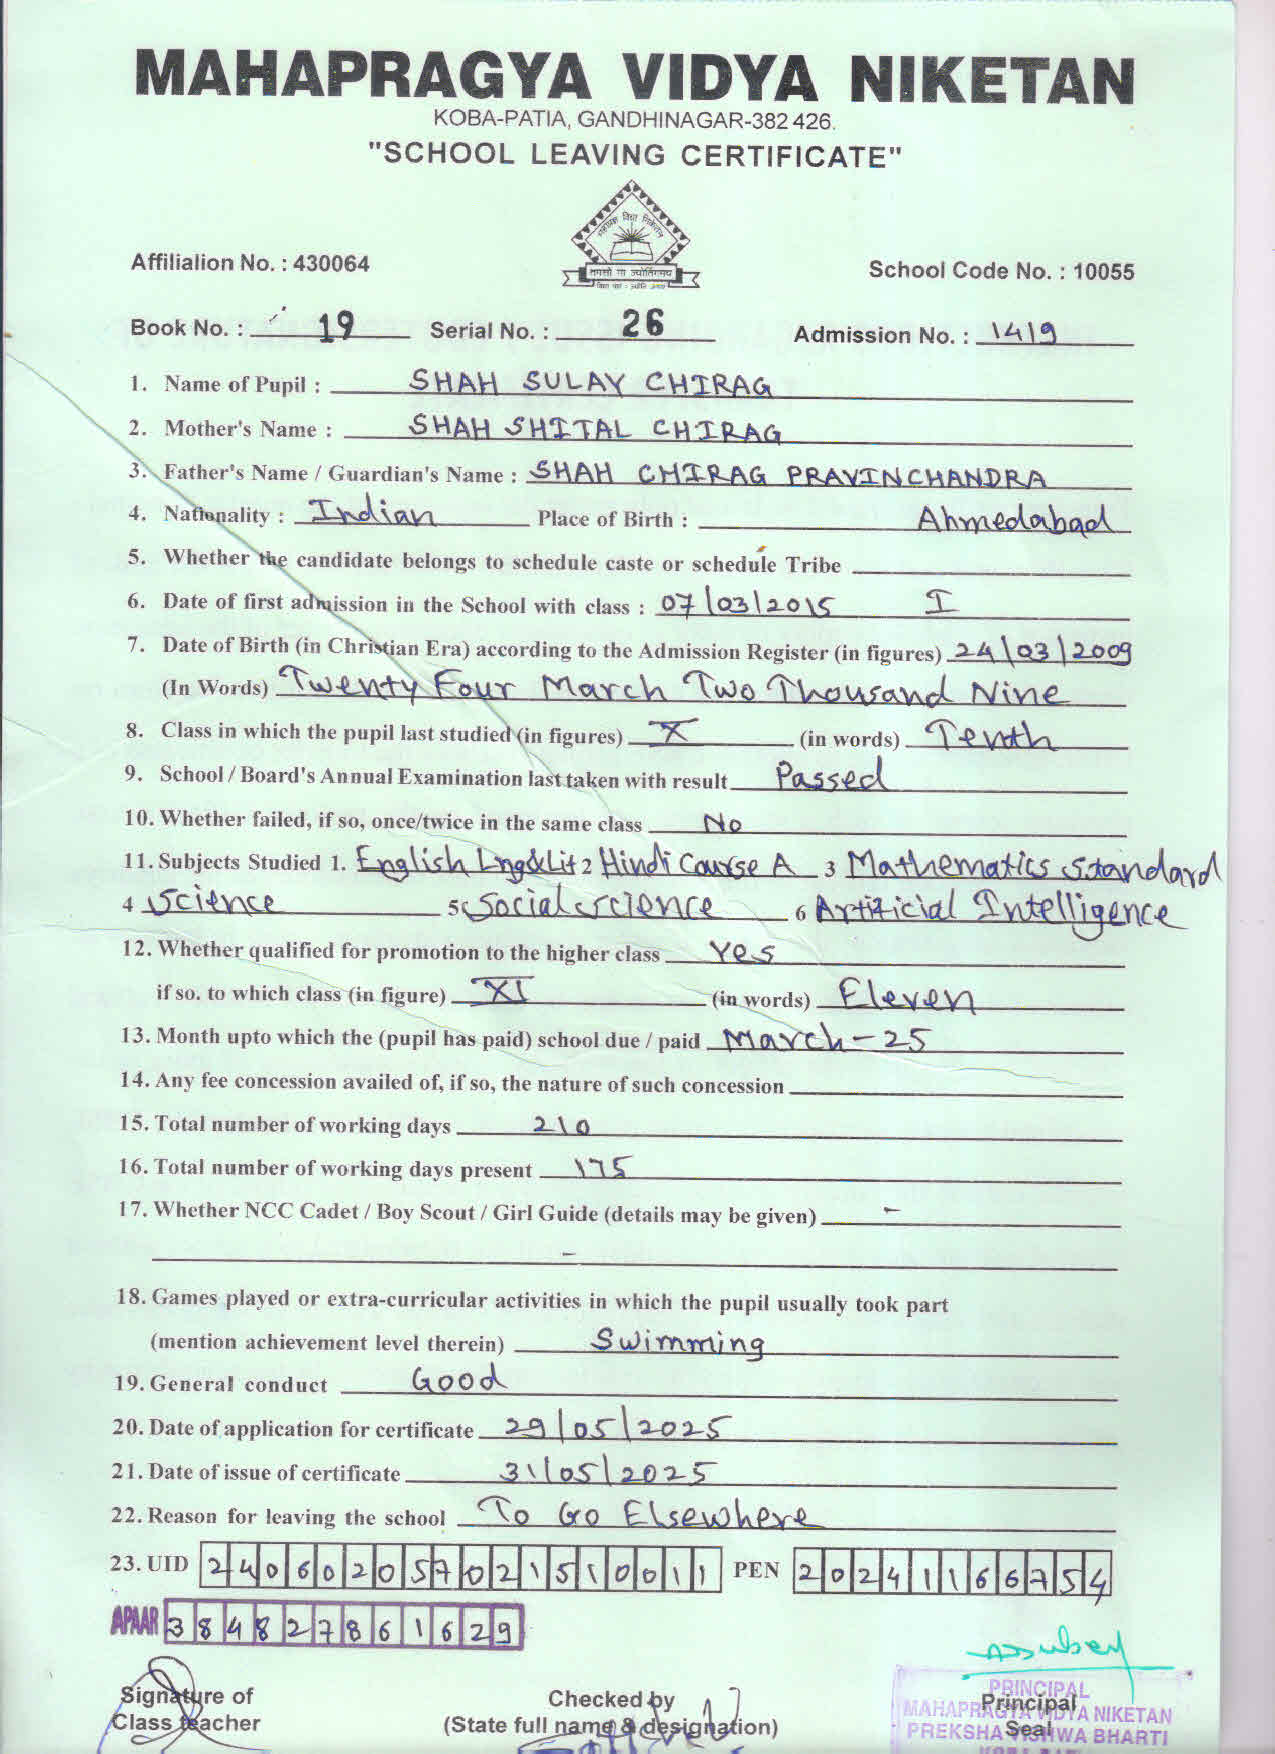 MAHAPRAGYA VIDYA NIKETAN
KOBA-PATIA, GANDHINAGAR-382 426.
"SCHOOL LEAVING CERTIFICATE"
महाप्रज्ञ विद्या निकेतन
तमसो मा ज्योतिर्गमय
Affilialion No. : 430064
School Code No. : 10055
Book No. : 19 Serial No. : 26 Admission No. : 1419
1. Name of Pupil : SHAH SULAY CHIRAG
2. Mother's Name : SHAH SHITAL CHIRAG
3. Father's Name / Guardian's Name : SHAH CHIRAG PRAVINCHANDRA
4. Nationality : Indian Place of Birth : Ahmedabad
5. Whether the candidate belongs to schedule caste or schedule Tribe
6. Date of first admission in the School with class : 07/03/2015 I
7. Date of Birth (in Christian Era) according to the Admission Register (in figures) 24/03/2009
(In Words) Twenty Four March Two Thousand Nine
8. Class in which the pupil last studied (in figures) X (in words) Tenth
9. School / Board's Annual Examination last taken with result Passed
10. Whether failed, if so, once/twice in the same class No
11. Subjects Studied 1. English Lng&Lit 2 Hindi Course A 3 Mathematics Standard
4 Science 5 Social Science 6 Artificial Intelligence
12. Whether qualified for promotion to the higher class Yes
if so. to which class (in figure) XI (in words) Eleven
13. Month upto which the (pupil has paid) school due / paid March-25
14. Any fee concession availed of, if so, the nature of such concession
15. Total number of working days 210
16. Total number of working days present 175
17. Whether NCC Cadet / Boy Scout / Girl Guide (details may be given) -
-
18. Games played or extra-curricular activities in which the pupil usually took part
(mention achievement level therein) Swimming
19. General conduct Good
20. Date of application for certificate 29/05/2025
21. Date of issue of certificate 31/05/2025
22. Reason for leaving the school To Go Elsewhere
23. UID 240602057021510011 PEN 20241166754
APAAR 384827861629
Signature of
Class teacher
Checked by
(State full name & designation)
Principal
Seal
PRINCIPAL
MAHAPRAGYA VIDYA NIKETAN
PREKSHA VISHWA BHARTI